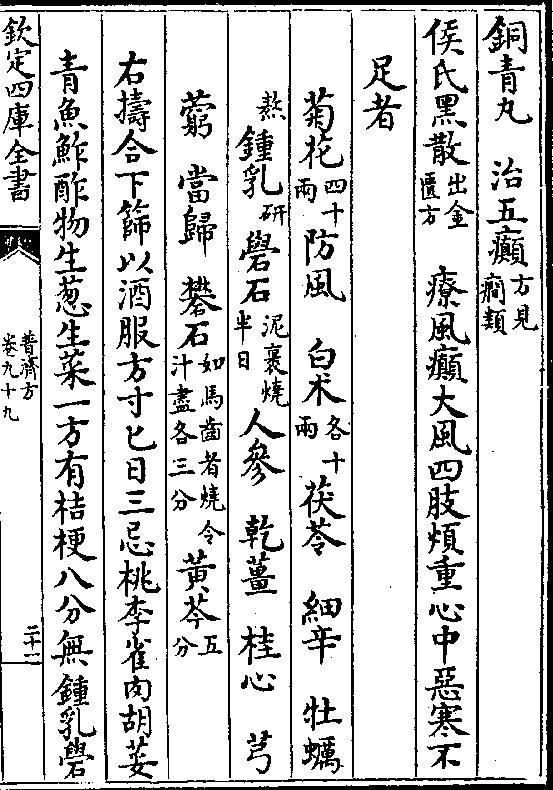 銅青丸　治五癲方見癎類
侯氏黑散出金匱方　療風癲大風四肢煩重心中惡寒不
足者
菊花四十兩防風　白术各十兩　茯苓　細辛　牡蠣
熬鍾乳研礜石泥裹燒半日人參　乾薑　桂心　芎
藭　當歸　礬石如馬齒者燒令汁盡各三分黃芩五分
右擣合下篩以酒服方寸匕日三忌桃李雀肉胡荽
青魚鮓酢物生葱生菜一方有桔梗八分無鍾乳礜
欽定四庫全書
普濟方
卷九十九
二十一